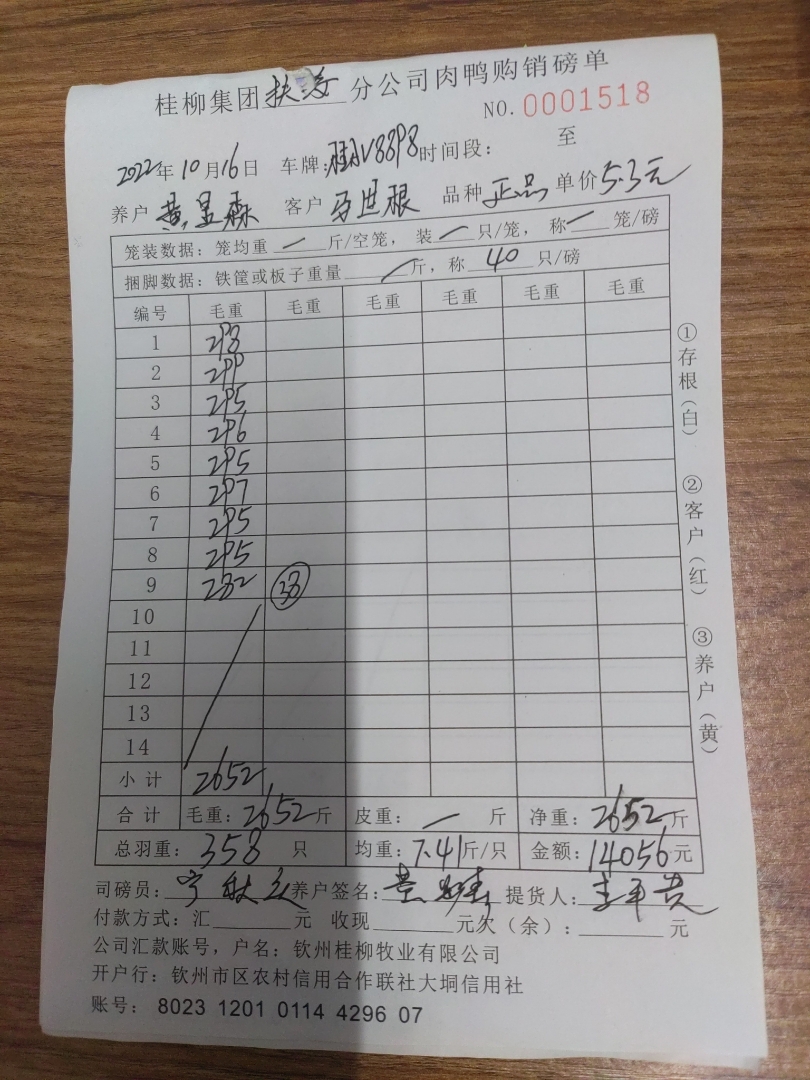 桂柳集团扶绥分公司肉鸭购销磅单
NO. 0001518
2022年10月16日 车牌: 时间段: 至
养户 黄昱森 客户 马世根 品种 正品 单价5.3元
笼装数据:笼均重 — 斤/空笼, 装 — 只/笼, 称 — 笼/磅
捆脚数据:铁筐或板子重量 — 斤, 称 40 只/磅
编号 毛重 毛重 毛重 毛重 毛重 毛重
1 298
2 299
3 295
4 296
5 295
6 297
7 295
8 295
9 282 38
10
11
12
13
14
小计 2652
合计 毛重:2652斤 皮重: — 斤 净重:2652斤
总羽重:358 只 均重:7.41斤/只 金额:14056元
司磅员: 养户签名: 提货人:
付款方式:汇 元 收现 元欠(余): 元
公司汇款账号,户名:钦州桂柳牧业有限公司
开户行:钦州市区农村信用合作联社大垌信用社
账号: 8023 1201 0114 4296 07
①存根(白)
②客户(红)
③养户(黄)